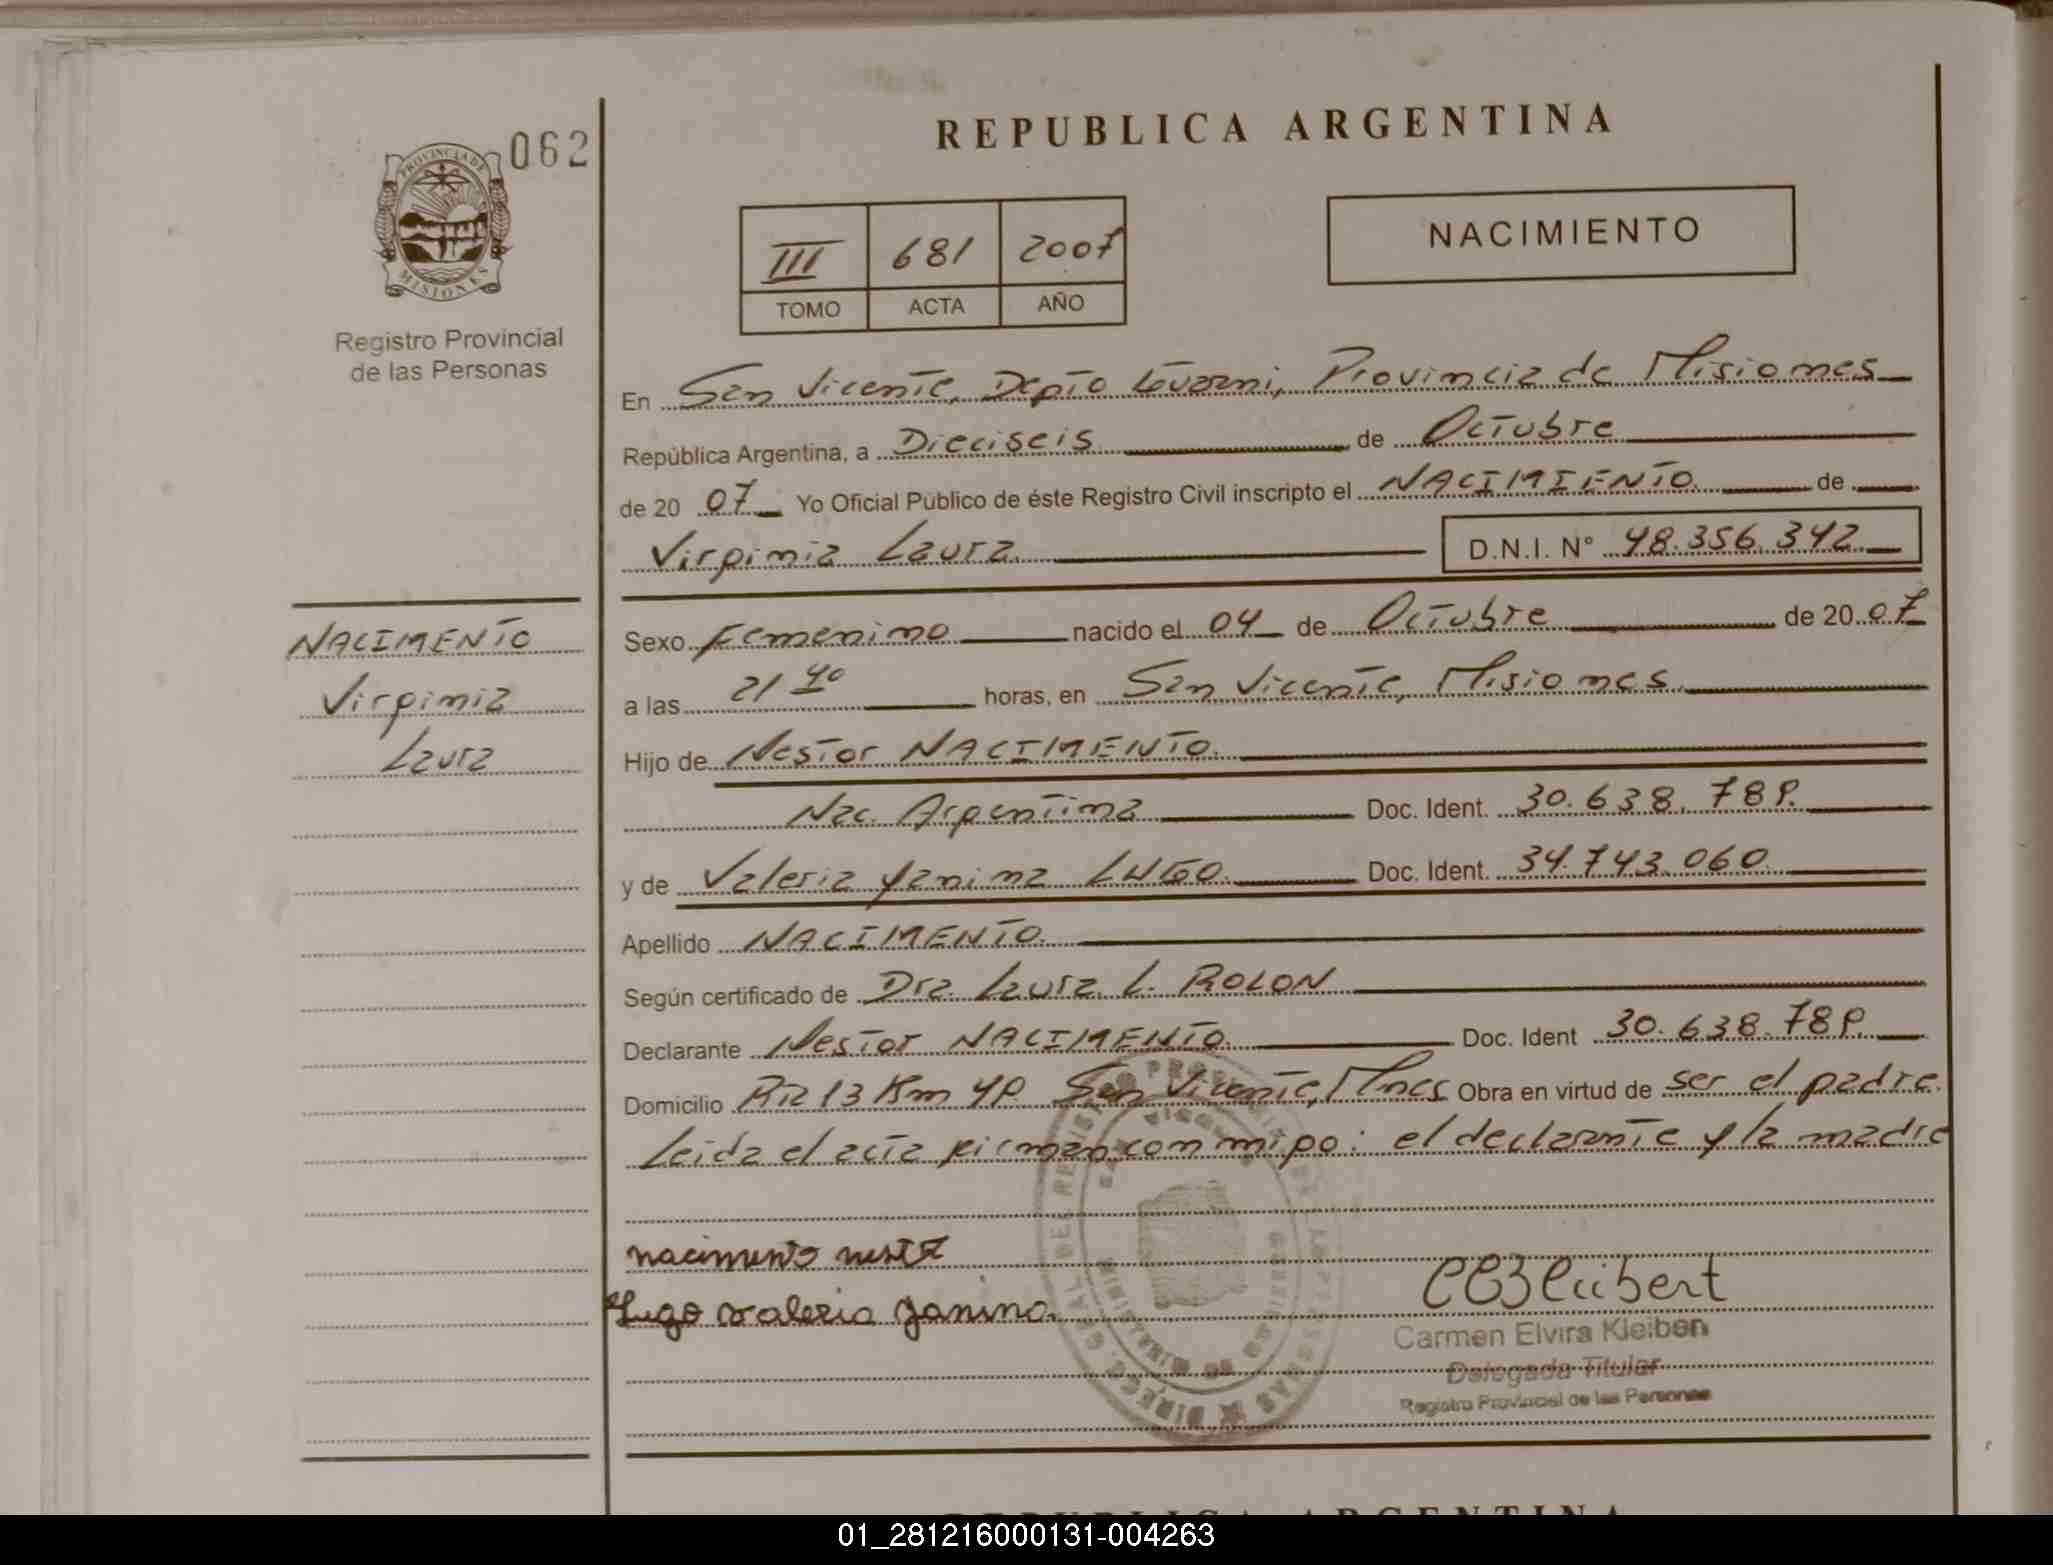 062
PROVINCIA DE
MISIONES
Registro Provincial
de las Personas
REPUBLICA ARGENTINA
III 681 2007
TOMO ACTA AÑO
NACIMIENTO
En San Vicente, Depto Guarani, Provincia de Misiones
República Argentina, a Dieciseis de Octubre
de 20 07 Yo Oficial Público de éste Registro Civil inscripto el NACIMIENTO de
Virginia Laura D.N.I. N° 48.356.342
NACIMENTO
Virginia
Laura
Sexo Femenino nacido el 04 de Octubre de 20 07
a las 21 40 horas, en San Vicente, Misiones
Hijo de Nestor NACIMENTO
Nac. Argentina Doc. Ident. 30.638.789
y de Valeria Yanina LUGO Doc. Ident. 34.743.060
Apellido NACIMENTO
Según certificado de Dra. Laura L. ROLON
Declarante Nestor NACIMENTO Doc. Ident 30.638.789
Domicilio RN 13 Km 49 San Vicente, Mnes Obra en virtud de ser el padre
Leida el acta firman conmigo: el declarante y la madre
nacimento
Lugo Valeria Janina
Carmen Elvira Kleibert
Delegada Titular
Registro Provincial de las Personas
REPUBLICA ARGENTINA
01_281216000131-004263